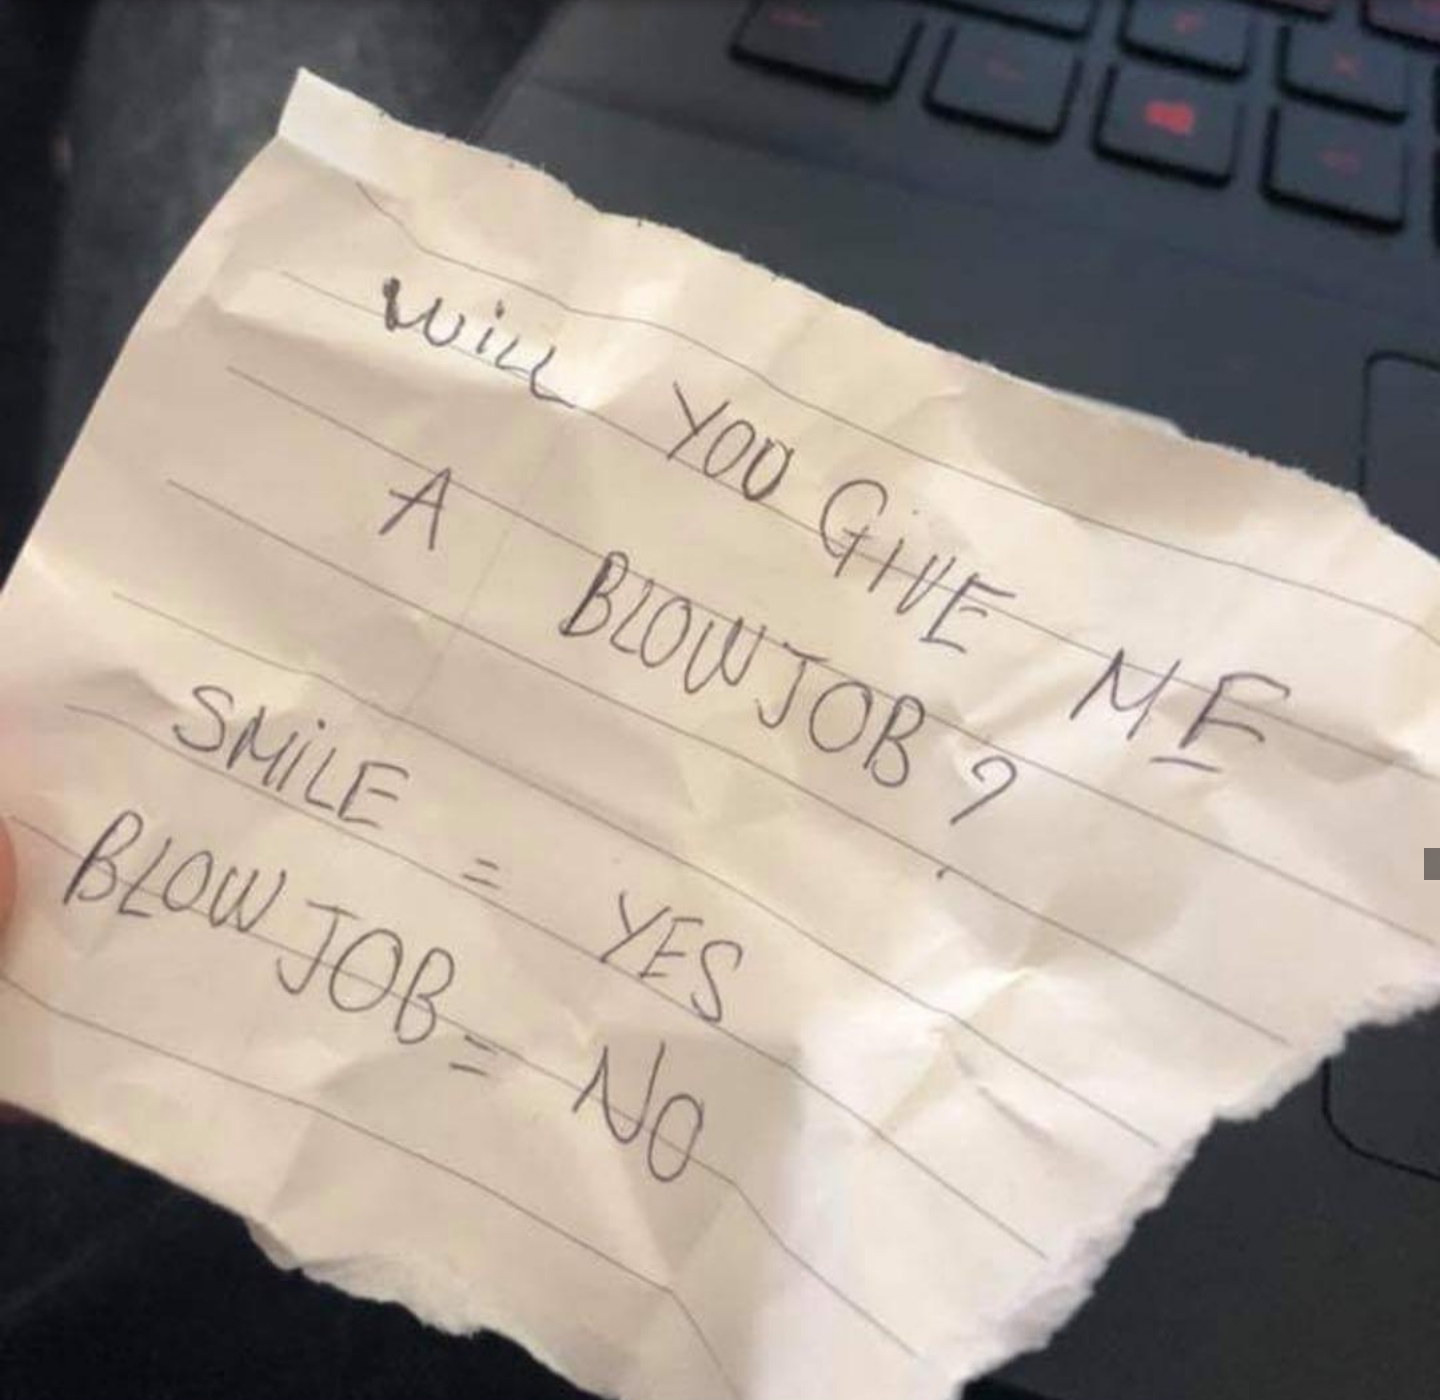 WiLL YOU GiVE ME
A BLOWJOB?
SMiLE = YES
BLOWJOB = NO